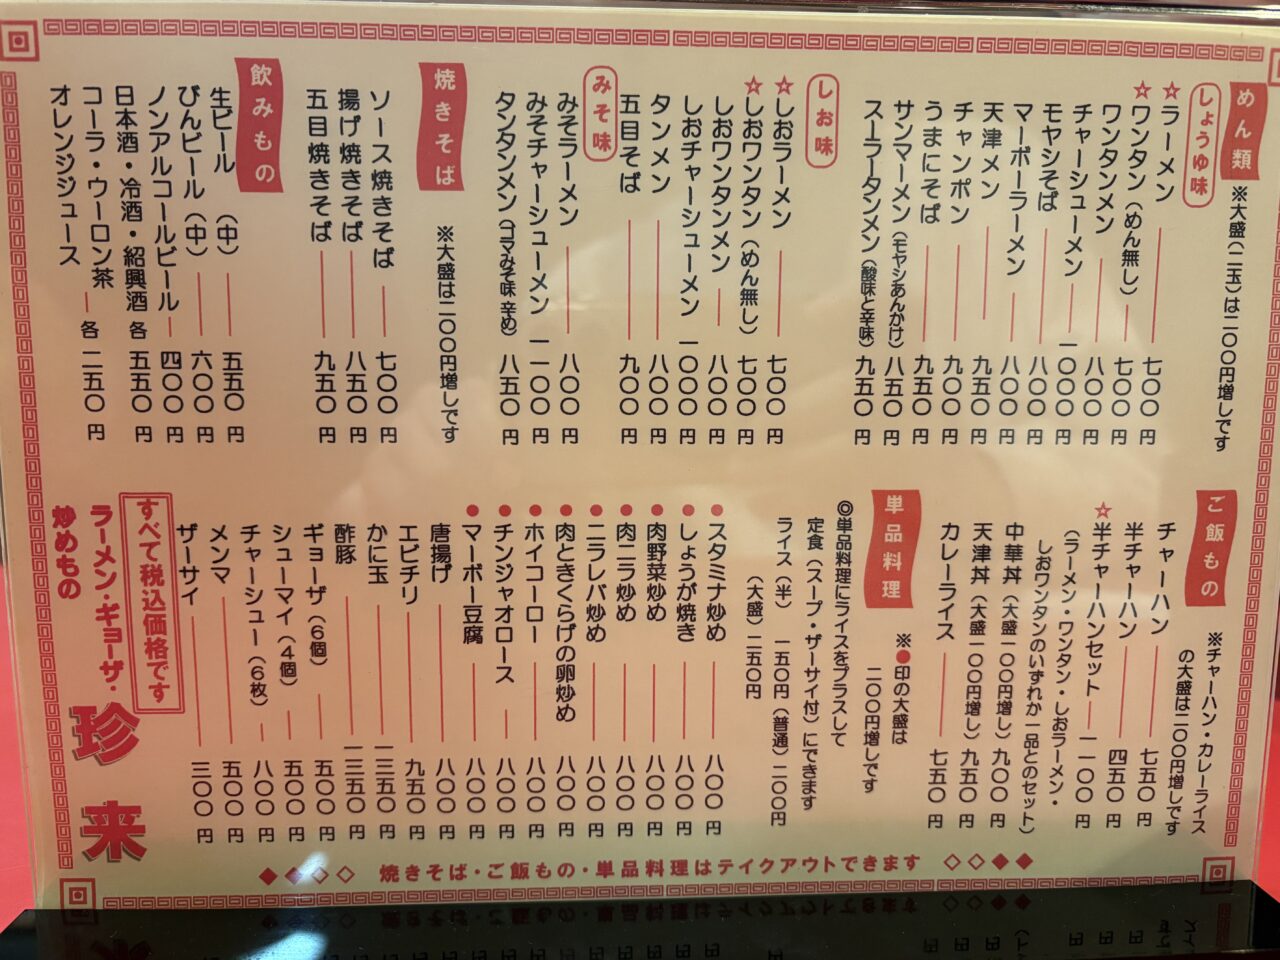 めん類
※大盛(二玉)は二〇〇円増しです
しょうゆ味
☆ラーメン 七〇〇円
☆ワンタン(めん無し) 七〇〇円
ワンタンメン 八〇〇円
チャーシューメン 一〇〇〇円
モヤシそば 八〇〇円
マーボーラーメン 八〇〇円
天津メン 九五〇円
チャンポン 九〇〇円
うまにそば 九五〇円
サンマーメン(モヤシあんかけ) 八五〇円
スーラータンメン(酸味と辛味) 九五〇円
しお味
☆しおラーメン 七〇〇円
☆しおワンタン(めん無し) 七〇〇円
しおワンタンメン 八〇〇円
しおチャーシューメン 一〇〇〇円
タンメン 八〇〇円
五目そば 九〇〇円
みそ味
みそラーメン 八〇〇円
みそチャーシューメン 一一〇〇円
タンタンメン(ゴマみそ味 辛め) 八五〇円
焼きそば
※大盛は二〇〇円増しです
ソース焼きそば 七〇〇円
揚げ焼きそば 八五〇円
五目焼きそば 九五〇円
飲みもの
生ビール (中) 五五〇円
びんビール(中) 六〇〇円
ノンアルコールビール 四〇〇円
日本酒・冷酒・紹興酒 各 五五〇円
コーラ・ウーロン茶 各 二五〇円
オレンジジュース
ご飯もの
※チャーハン・カレーライス
の大盛は二〇〇円増しです
チャーハン 七五〇円
半チャーハン 四五〇円
☆半チャーハンセット 一一〇〇円
(ラーメン・ワンタン・しおラーメン・
しおワンタンのいずれか一品とのセット)
中華丼(大盛一〇〇円増し) 九〇〇円
天津丼(大盛一〇〇円増し) 九五〇円
カレーライス 七五〇円
単品料理
※●印の大盛は
二〇〇円増しです
◎単品料理にライスをプラスして
定食(スープ・ザーサイ付)にできます
ライス(半) 一五〇円(普通)二〇〇円
(大盛)二五〇円
●スタミナ炒め 八〇〇円
●しょうが焼き 八〇〇円
●肉野菜炒め 八〇〇円
●肉ニラ炒め 八〇〇円
●ニラレバ炒め 八〇〇円
●肉ときくらげの卵炒め 八〇〇円
●ホイコーロー 八〇〇円
●チンジャオロース 八〇〇円
●マーボー豆腐 八〇〇円
唐揚げ 八〇〇円
エビチリ 九五〇円
かに玉 一三五〇円
酢豚 一三五〇円
ギョーザ(6個) 五〇〇円
シューマイ(4個) 五〇〇円
チャーシュー(6枚) 八〇〇円
メンマ 五〇〇円
ザーサイ 三〇〇円
すべて税込価格です
ラーメン・ギョーザ・
炒めもの
珍来
焼きそば・ご飯もの・単品料理はテイクアウトできます